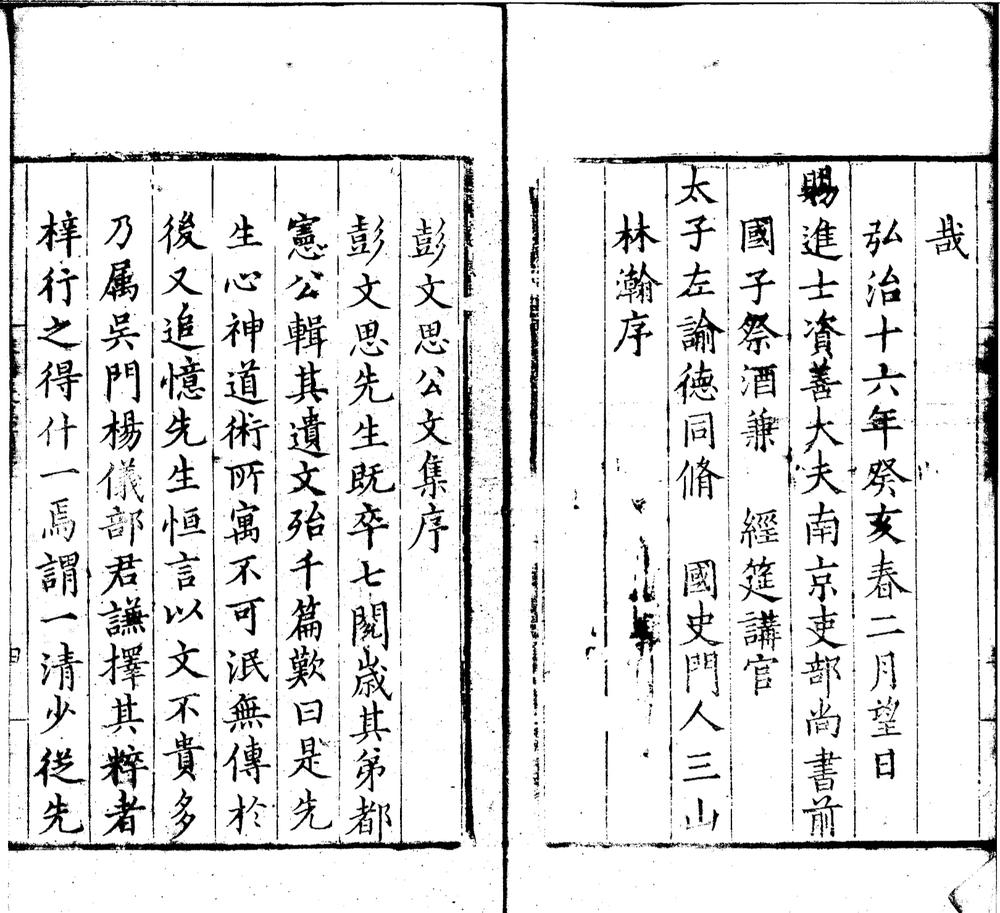 哉
弘治十六年癸亥春二月望日
賜進士資善大夫南京吏部尚書前
國子祭酒兼　經筵講官
太子左諭德同脩　國史門人三山
林瀚序
彭文思公文集序
彭文思先生既卒七閱歲其弟都
憲公輯其遺文殆千篇歎曰是先
生心神道術所寓不可泯無傳於
後又追憶先生恒言以文不貴多
乃属吳門楊儀部君謙擇其粹者
梓行之得什一焉謂一清少從先